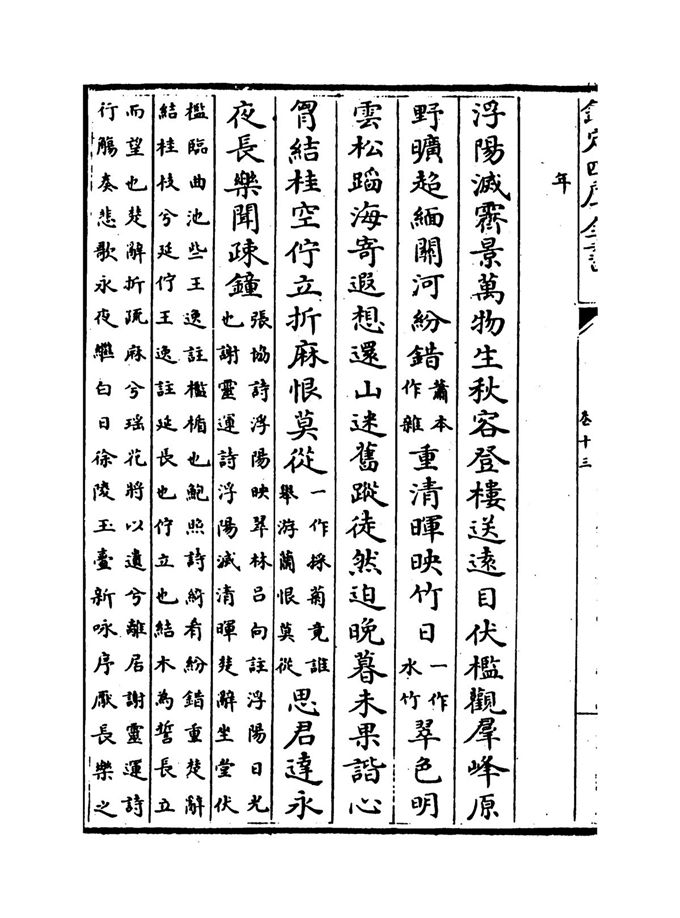 欽定四庫全書
卷十三
年
浮陽滅霽景萬物生秋容登樓送遠目伏檻觀羣峰原
野曠超緬關河紛錯蕭本作雜重清暉映竹日一作水竹翠色明
雲松蹈海寄遐想還山迷舊蹤徒然迫晚暮未果諧心
胷結桂空佇立折麻恨莫從一作採菊竟誰舉游蘭恨莫從思君達永
夜長樂聞疎鐘張協詩浮陽映翠林呂向註浮陽日光也謝靈運詩浮陽滅清暉楚辭坐堂伏
檻臨曲池些王逸註檻楯也鮑照詩綺肴紛錯重楚辭
結桂枝兮延佇王逸註延長也佇立也結木為誓長立
而望也楚辭折疏麻兮瑶花將以遺兮離居謝靈運詩
行觴奏悲歌永夜繼白日徐陵玉臺新咏序厭長樂之